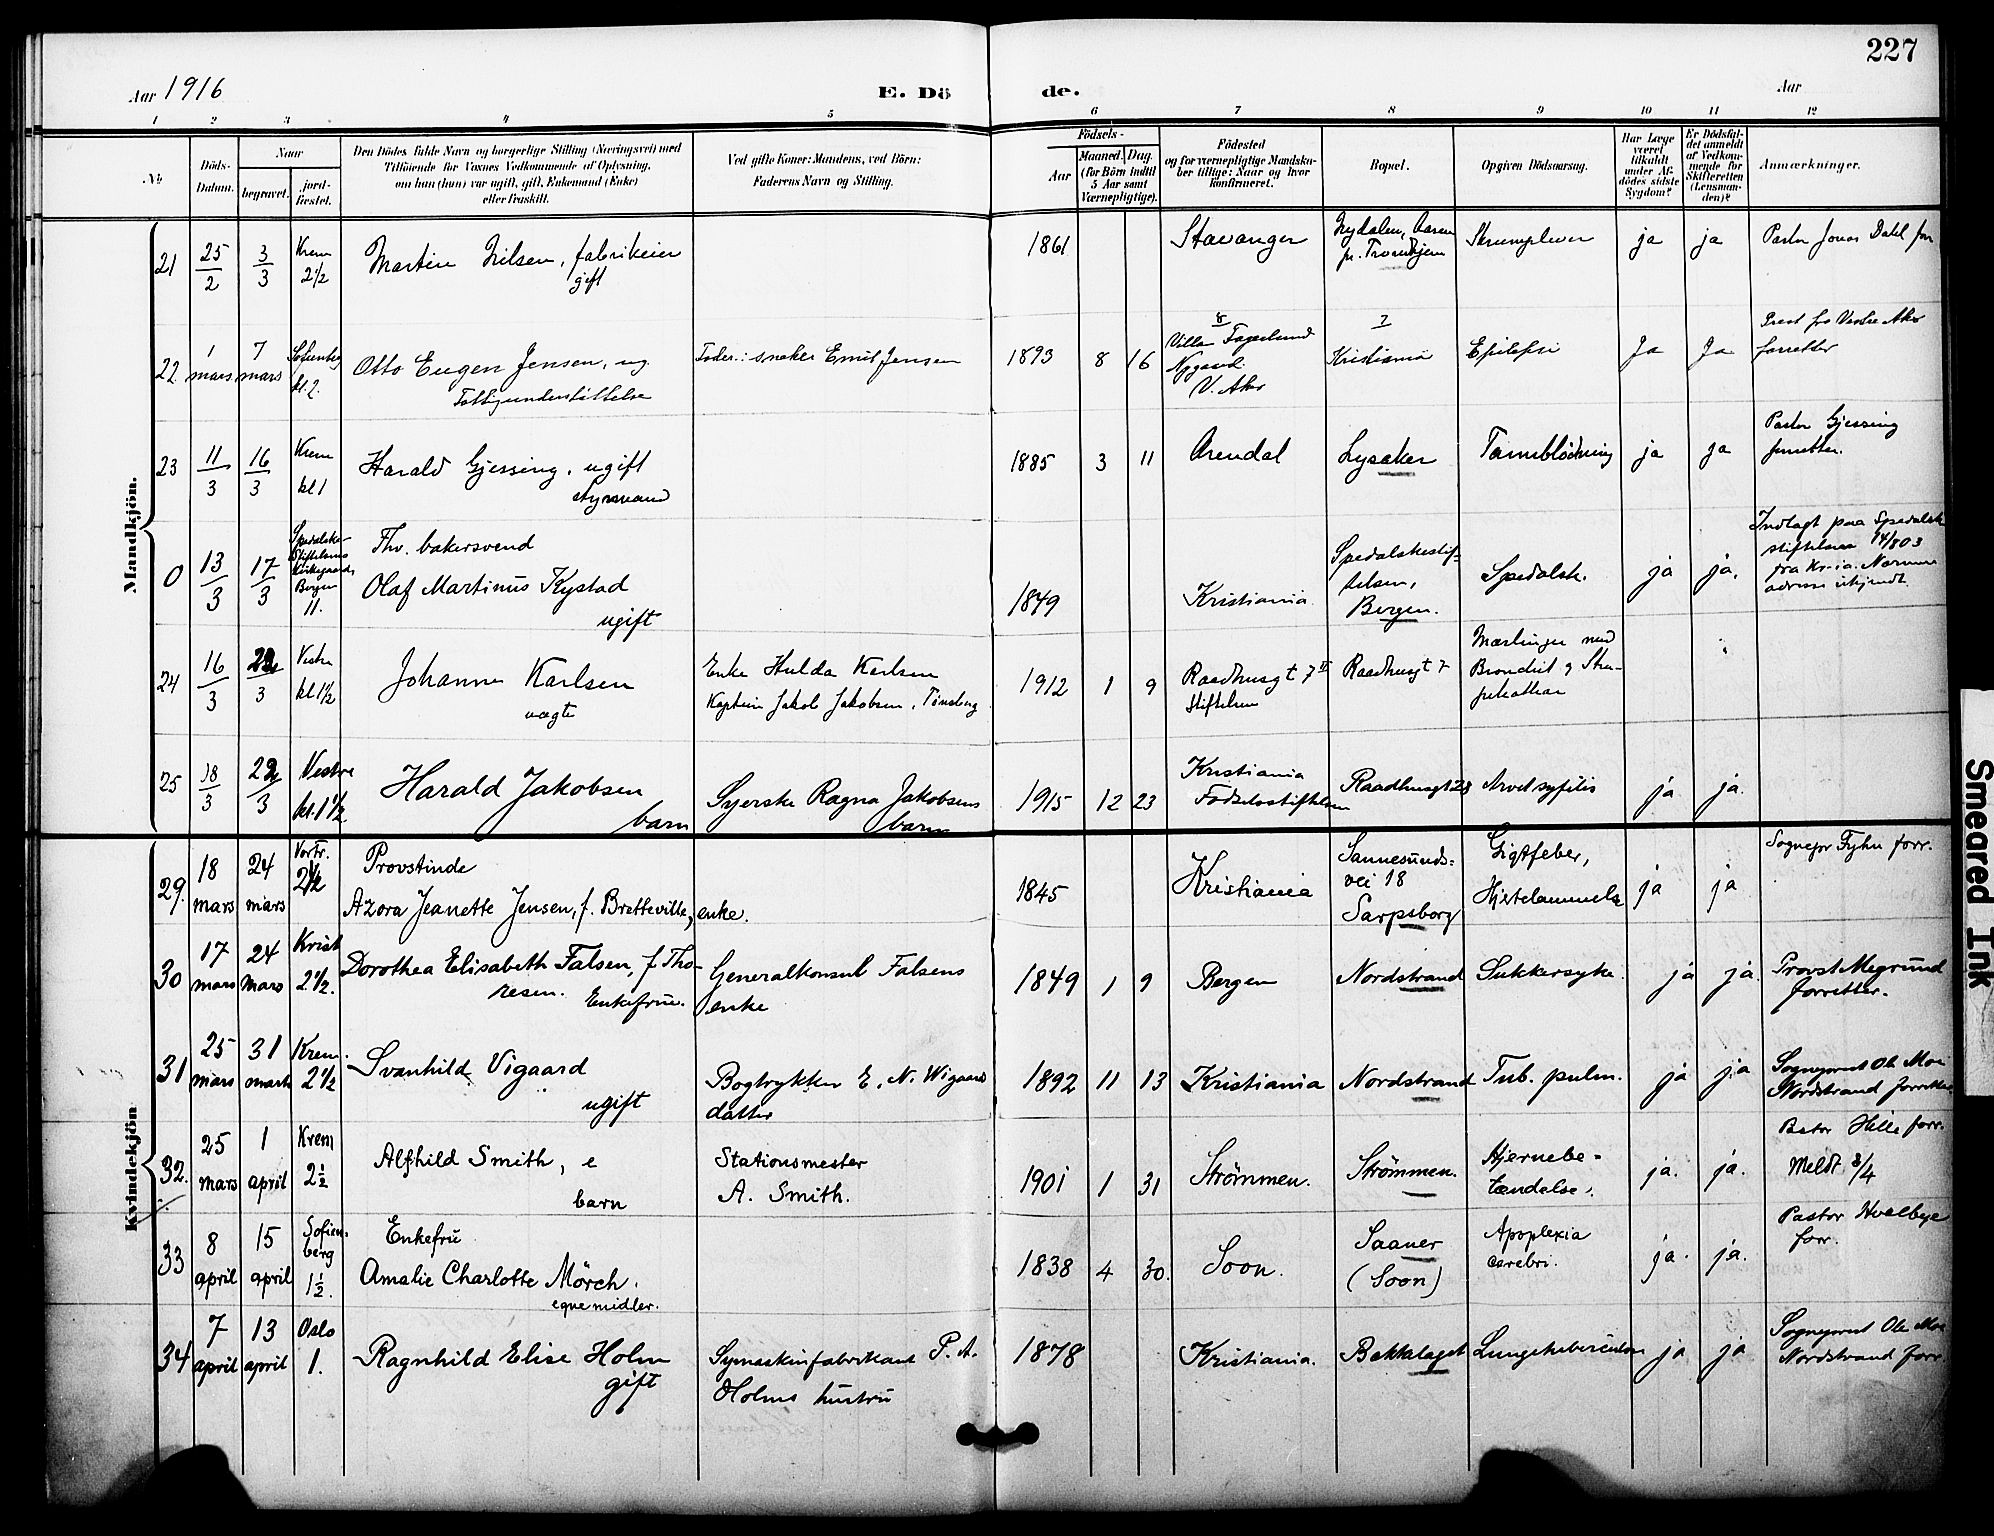 227
Aar 1916
E. Dö
de.
Aar
1 2 3 4 5 6 7 8 9 10 11 12
№
Döds-
Datum.
Naar
begravet.
jord-
fæstet.
Den Dödes fulde Navn og borgerlige Stilling (Næringsvei) med
Tilföiende for Voxnes Vedkommende af Oplysning,
om han (hun) var ugift, gift, Enkemand (Enke)
eller fraskilt.
Ved gifte Koner: Mandens, ved Börn:
Faderens Navn og Stilling.
Födsels-
Aar
Maaned. Dag
(for Börn indtil
5 Aar samt
Værnepligtige).
Födested
og for værnepligtige Mandska-
ber tillige: Naar og hvor
konfirmeret.
Bopæl.
Opgiven Dödsaarsag.
Har Læge
været
tilkaldt
under Af-
dödes sidste
Sygdom?
Er Dödsfal-
det anmeldt
af Vedkom-
mende for
Skifteretten
(Lensman-
den)?
Anmærkninger.
Mandkjön.
21 25/2 3/3 Krem 2½ Martin Nilsen, fabrikeier
gift
1861 Stavanger Nydalen,
pr. Trondhjem
Skrumplever ja ja Pastor Jonas Dahl forr
22 1 mars 7 mars Sofienbg kl. 2. Otto Eugen Jensen, ug.
Fattigunderstöttelse
Fader: sneker Emil Jensen
1893 8 16 Villa Fagerlund
Nygaard
V. Aker
Kristiania Epilepsi Ja Ja Prest fra Vestre Aker
forretter
23 11/3 16/3 Krem kl 1 Harald Gjessing, ugift
styrmand
1885 3 11 Arendal Lysaker Tarmblödning ja ja Pastor Gjessing
forretter.
0 13/3 17/3 Spedalske-
Stiftelsens
Kirkegaard,
Bergen
11.
Fhv. bakersvend
Olaf Martinus Kystad
ugift
1849 Kristiania Spedalskestif-
telsen,
Bergen.
Spedalsk. ja ja. Indlagt paa Spedalsk
stiftelsen 14/8 03
fra Kr-ia. Nærmere
adresse ukjendt
24 16/3 22/3 Vestre kl 1½ Johannes Karlsen
uegte
Enke Hulda Karlsen
Kaptein Jakob Jakobsen, Tönsberg
1912 1 9 Raadhusgt 7 II
Stiftelsen
Raadhusgt 7 Mæslinger med
25 18/3 22/3 Vestre kl. 1½ Harald Jakobsen
barn
Syerske Ragna Jakobsens
barn
1915 12 23 Kristiania
Födselsstiftelsen
Raadhusgt 28 Arvet syfilis ja ja.
Kvindekjön
29. 18 mars 24 mars Vor Fr. 2½ Provstinde
Azora Jeanette Jensen, f. Bretteville, enke.
1845 Kristiania Sannesunds-
vei 18
Sarpsborg
Gigtfeber,
Hjertelammelse
ja ja Sognepr Fyhn forr.
30 17 mars 24 Mars Krist 2½. Dorothea Elisabeth Falsen, f. Tho-
resen. Enkefrue.
Generalkonsul Falsens
enke
1849 1 9 Bergen Nordstrand Sukkersyke. ja ja. Provst Megrund
forretter.
31 25 mars 31 marts Krem. 2½ Svanhild Vigaard
ugift
Bogtrykker E. N. Wigaard
datter
1892 11 13 Kristiania Nordstrand Tub. pulm. ja ja Sogneprest Ole Moe
Nordstrand forretter
32. 25 mars 1 april Krem 2½ Alfhild Smith, e
barn
Stationsmester
A. Smith.
1901 1 31 Strömmen. Strömmen. Hjernebe-
tændelse.
ja. ja. Pastor Hille forr.
Meldt 8/4
33 8 april 15 april Sofien-
berg
1½.
Enkefru
Amalie Charlotte Mörch.
egne midler.
1838 4 30. Soon. Saaner
(Soon)
Apoplexia
cerebri.
ja. ja. Pastor Hvalbye
forr.
34 7 april 13 april Oslo 1. Ragnhild Elise Holm
gift
Symaskinfabrikant P. A.
Holms hustru
1878 Kristiania. Bekkelaget Lungetuberculose ja ja Sogneprest Ole Moe
Nordstrand forr.
Smeared Ink